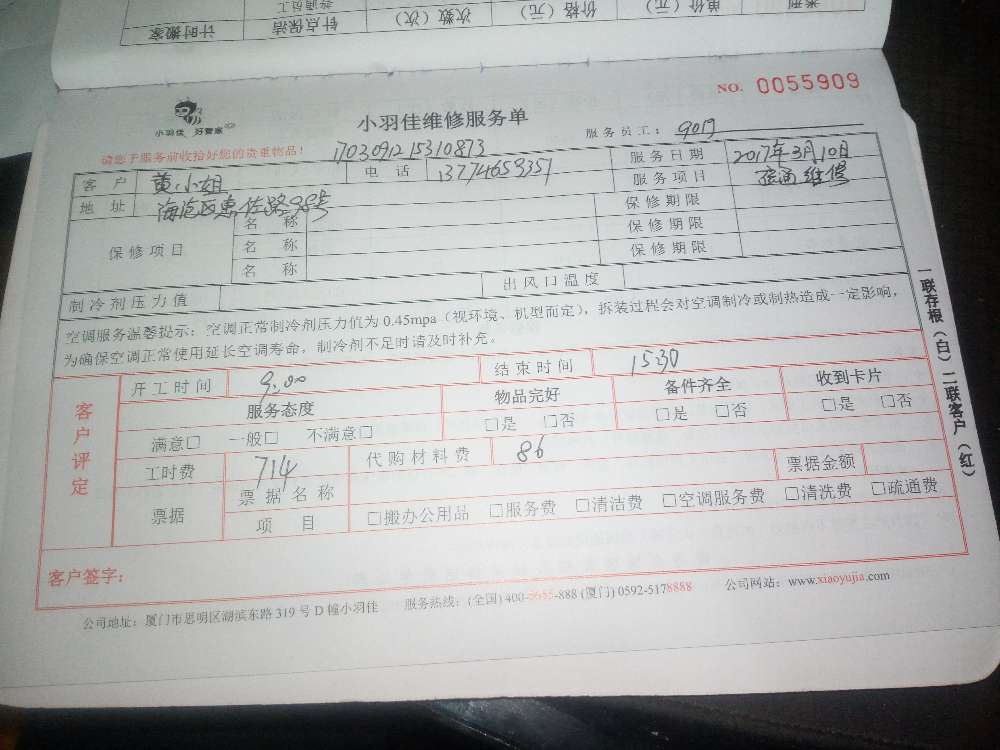 计时搬家 针点保洁 次数（次） 价格（元） 单价（元） 类别
普通员工
NO. 0055909
小羽佳 好管家
小羽佳维修服务单
服务员工：
请您于服务前收拾好您的贵重物品！ 1703091215310873
客户 黄小姐 电话 13774659351 服务日期 2017年3月10日
地址 海沧区惠佐路98号 服务项目 疏通维修
保修项目 名称 保修期限
名称 保修期限
名称 保修期限
制冷剂压力值 出风口温度
空调服务温馨提示：空调正常制冷剂压力值为 0.45mpa（视环境、机型而定），拆装过程会对空调制冷或制热造成一定影响，
为确保空调正常使用延长空调寿命，制冷剂不足时请及时补充。
客户评定
开工时间 9:00 结束时间 1530
服务态度 物品完好 备件齐全 收到卡片
满意□ 一般□ 不满意□ □是 □否 □是 □否 □是 □否
工时费 714 代购材料费 86
票据 票据名称 票据金额
项目 □搬办公用品 □服务费 □清洁费 □空调服务费 □清洗费 □疏通费
客户签字：
公司地址：厦门市思明区湖滨东路 319 号 D 幢小羽佳 服务热线：(全国) 400-6685-888 (厦门) 0592-5178888 公司网站：www.xiaoyujia.com
一联存根（白）二联客户（红）